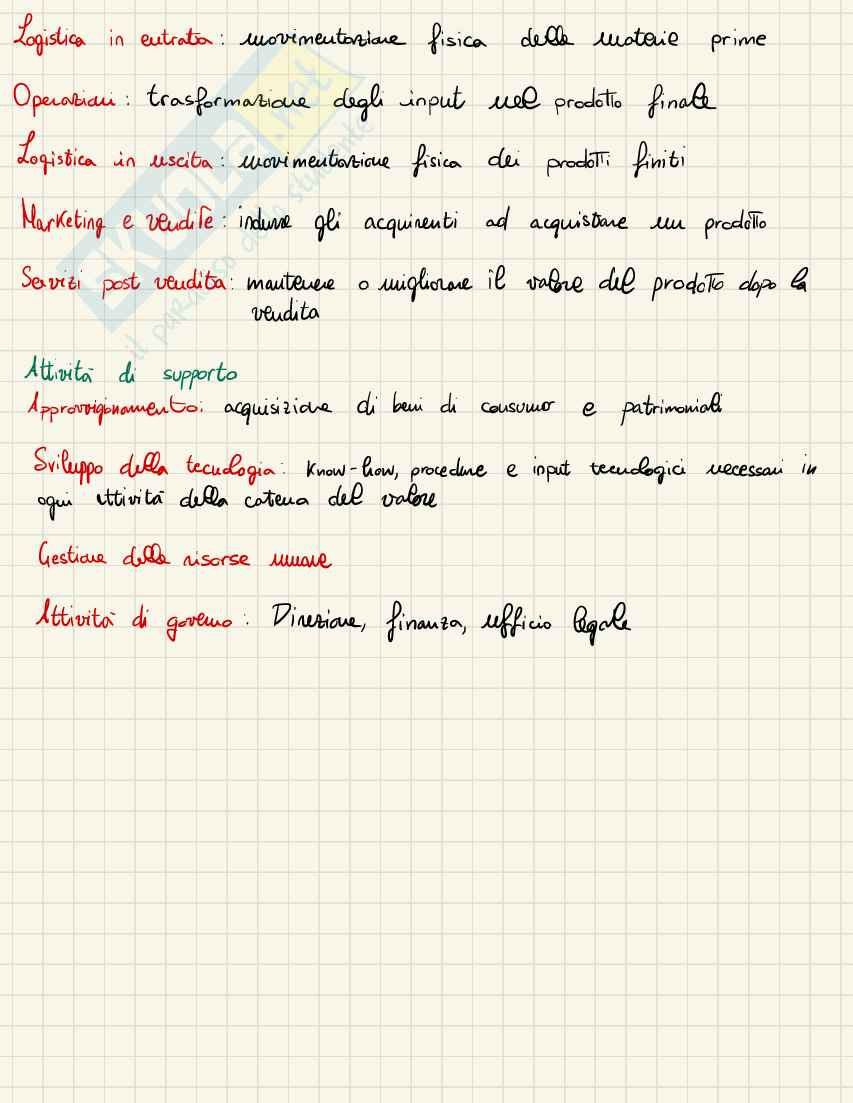 Logistica in entrata: movimentazione fisica delle materie prime
Operazioni: trasformazione degli input nel prodotto finale
Logistica in uscita: movimentazione fisica dei prodotti finiti
Marketing e vendite: indurre gli acquirenti ad acquistare un prodotto
Servizi post vendita: mantenere o migliorare il valore del prodotto dopo la
vendita
Attività di supporto
Approvvigionamento: acquisizione di beni di consumo e patrimoniali
Sviluppo della tecnologia: know-how, procedure e input tecnologici necessari in
ogni attività della catena del valore
Gestione delle risorse umane
Attività di governo: Direzione, finanza, ufficio legale
SKUOLA.net
il paradiso dello studente